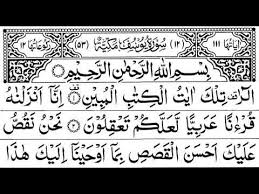 اٰيَاتُهَا ١١١ (١٢) سُوْرَةُ يُوْسُفَ مَكِّيَّةٌ (٥٣) رُكُوْعَاتُهَا ١٢
بِسْمِ اللّٰهِ الرَّحْمٰنِ الرَّحِيْمِ
الٓرٰ تِلْكَ اٰيٰتُ الْكِتٰبِ الْمُبِيْنِ ۝١ اِنَّاۤ اَنْزَلْنٰهُ
قُرْءٰنًا عَرَبِيًّا لَّعَلَّكُمْ تَعْقِلُوْنَ ۝٢ نَحْنُ نَقُصُّ
عَلَيْكَ اَحْسَنَ الْقَصَصِ بِمَاۤ اَوْحَيْنَاۤ اِلَيْكَ هٰذَا